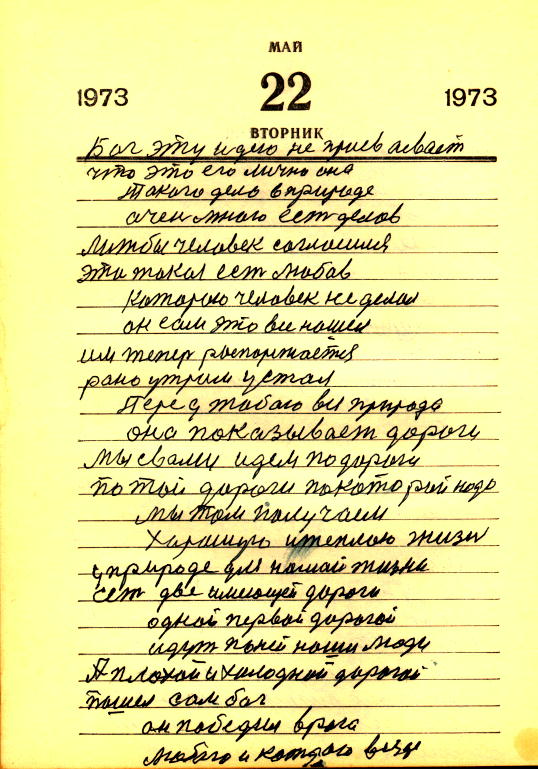 МАЙ
1973 22 1973
ВТОРНИК
Бог эту идею не присваевает
что это его лично она
такого дело в природе
очен много ест делов
Лижбы человек согласился
это такая ест любов
Которою человек не делал
он сам это все нашел
им тепер роспоряжается
рано утрим устал
Перед табаю вся природа
она показывает дороги
мы свами идем по дороги
по тои дороги покоторый надо
мы там получаем
Харошую итеплою жизн
у природе для нашай жизни
ест две имеющей дороги
одной первой дорогой
идут поней наши люди
А плохой и холодной дорогой
пошел сам бог
он победил врага
Любого и каждаго везде